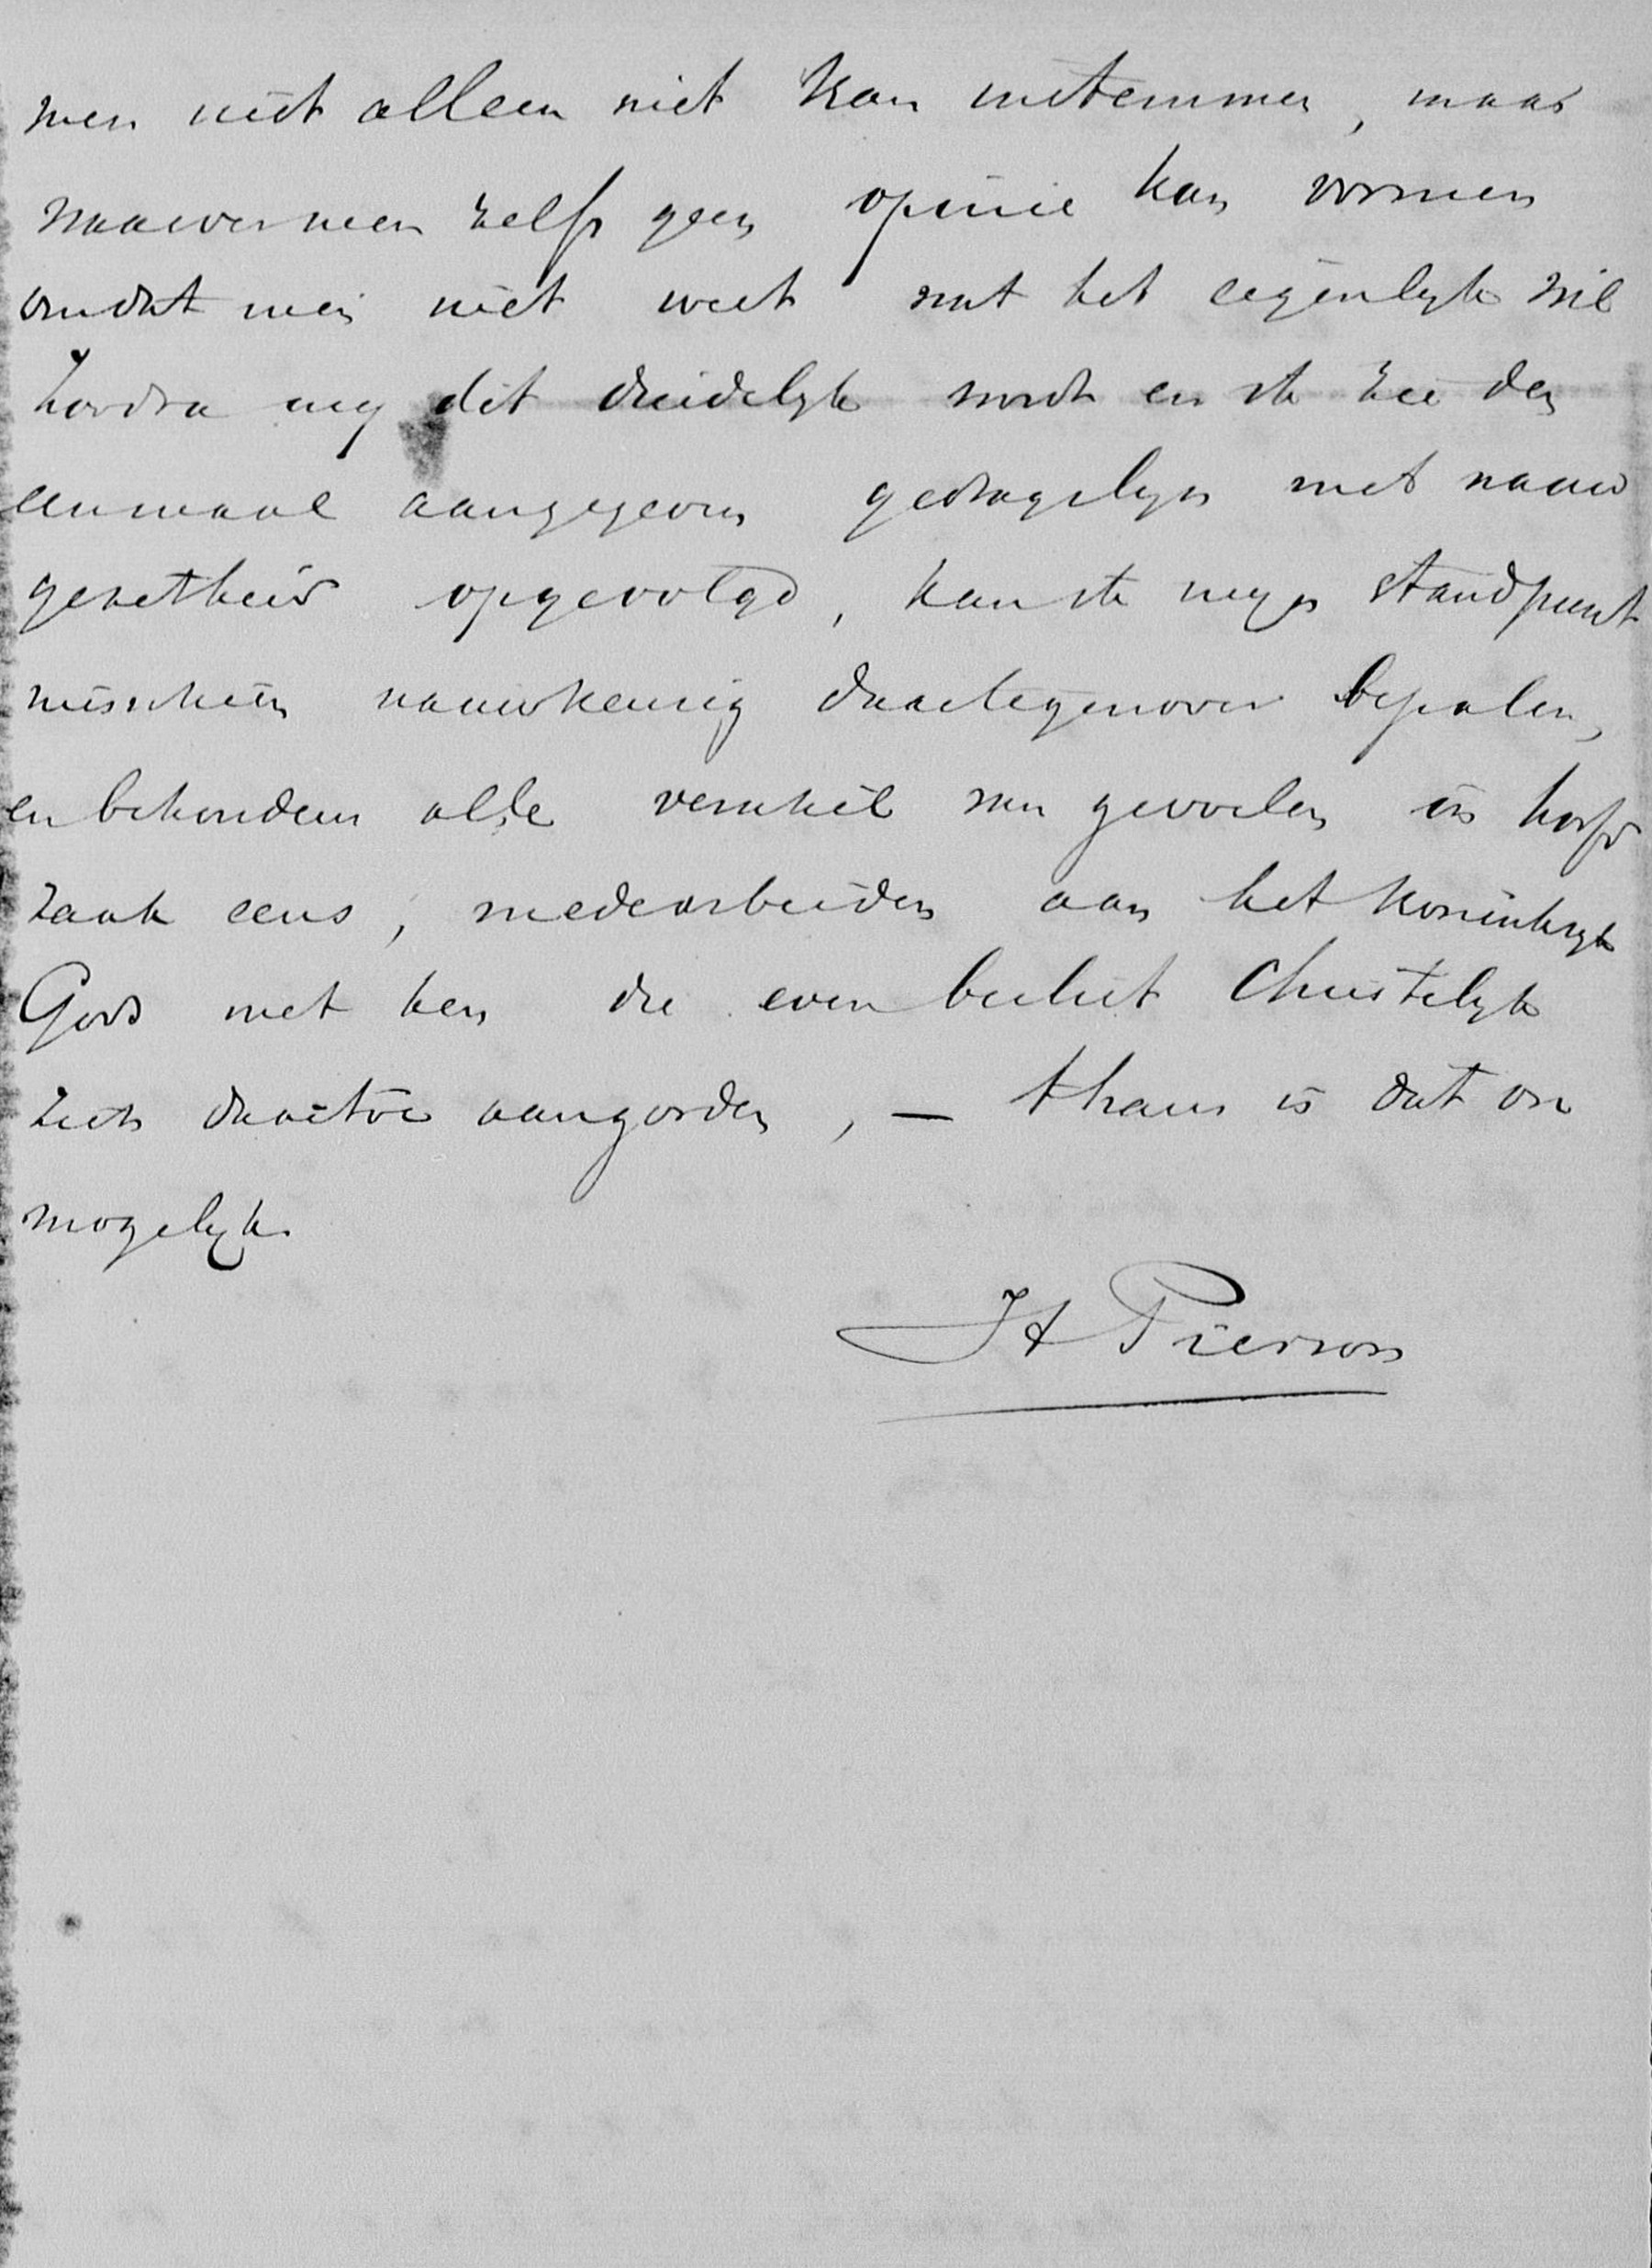 men niet alleen niet kan instemmen, maar
waarover men zelfs geen opinie kan vormen
omdat men niet weet wat het eigenlyk wil
Zoodra my dit duidelyk wordt en ik zie den
eenmaal aangegeven gedragslyn met nauw
gezetheid opgevolgd, kan ik myn standpunt
misschien nauwkeurig daartegenover bepalen,
en behoudens alle verschil van gevoelen in hoofd
zaak eens, medearbeiden aan het Koninkryk
Gods met hen die even beslist Christelyk
zich daartoe aangorden, — thans is dat on
mogelyk.
HPierson